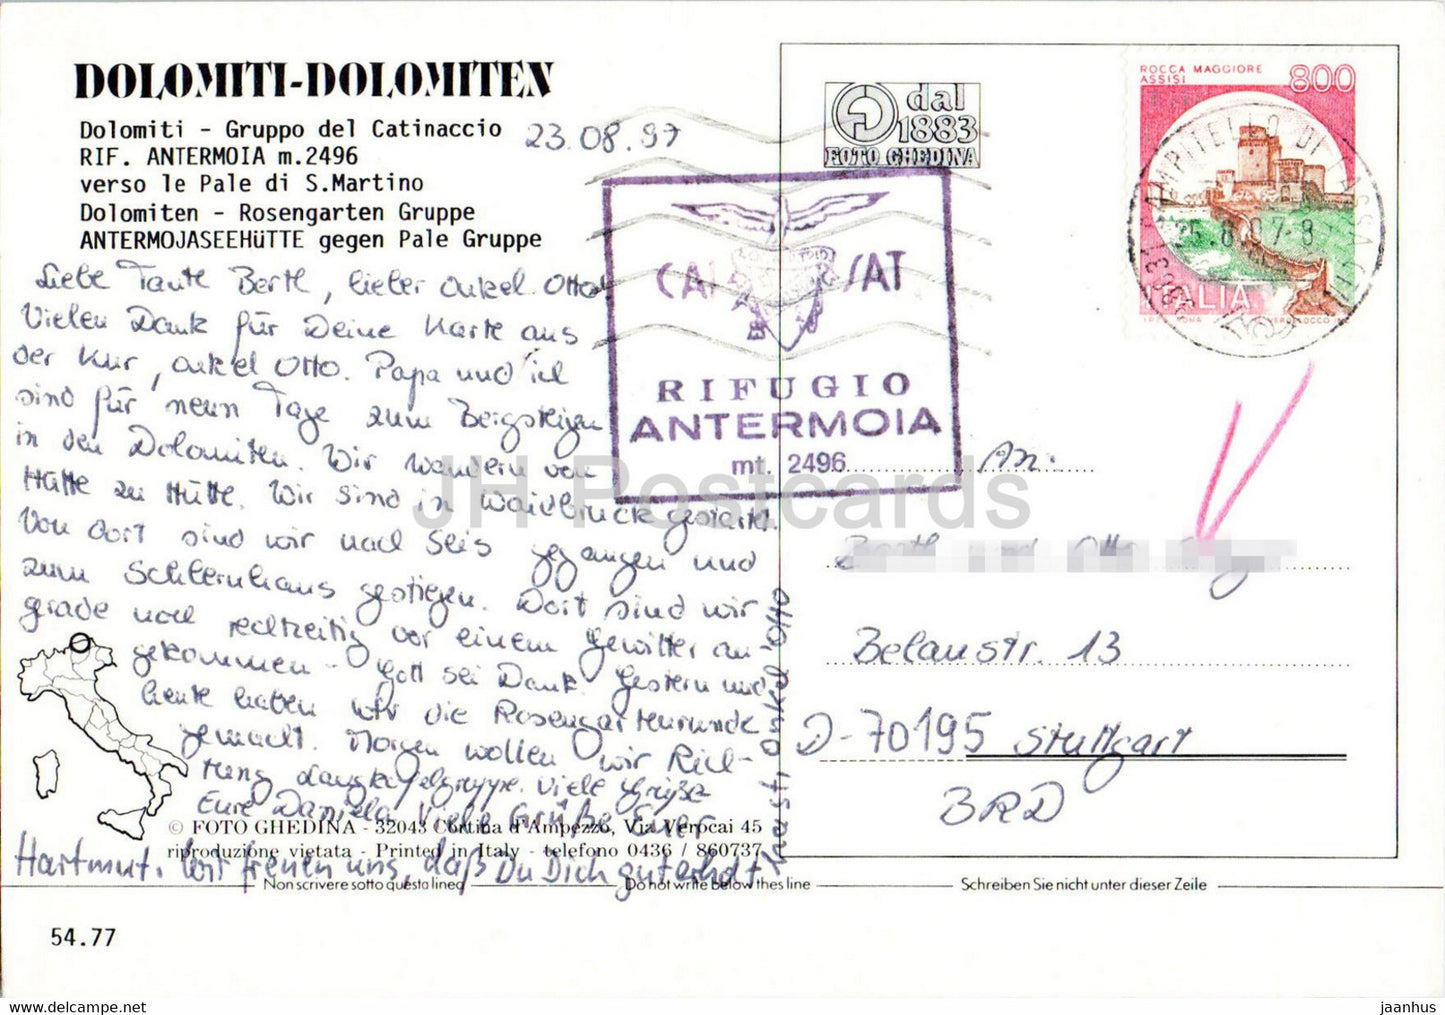 DOLOMITI-DOLOMITEN
Dolomiti - Gruppo del Catinaccio
RIF. ANTERMOIA m.2496
verso le Pale di S.Martino
Dolomiten - Rosengarten Gruppe
ANTERMOJASEEHüTTE gegen Pale Gruppe
23.08.97
Liebe Tante Bertl, lieber Onkel Otto!
Vielen Dank für Deine Karte aus
der Kur, Onkel Otto. Papa und ich
sind für neun Tage zum Bergsteigen
in den Dolomiten. Wir wandern von
Hütte zu Hütte. Wir sind in Waidbruck gestartet.
Von dort sind wir nach Seis gegangen und
zum Schlernhaus gestiegen. Dort sind wir
gerade noch rechtzeitig vor einem Gewitter an-
gekommen - Gott sei Dank. Gestern und
heute haben wir die Rosengartenrunde
gemacht. Morgen wollen wir Rich-
tung Langkofelgruppe. Viele Grüße
Eure Daniela Viele Grüße Euer
Hartmut. Wir freuen uns, daß Du Dich gut erholt
hast, Onkel Otto
© FOTO GHEDINA - 32043 Cortina d'Ampezzo, Via Verocai 45
riproduzione vietata - Printed in Italy - telefono 0436 / 860737
Non scrivere sotto questa linea
Do not write below thes line
Schreiben Sie nicht unter dieser Zeile
54.77
dal
1883
FOTO GHEDINA
SAT
RIFUGIO
ANTERMOIA
mt. 2496
ROCCA MAGGIORE
ASSISI
800
ITALIA
An:
Bertl und Otto
Belaustr. 13
D-70195 Stuttgart
BRD
JH Postcards
www.hippostcard.com
jaanhus